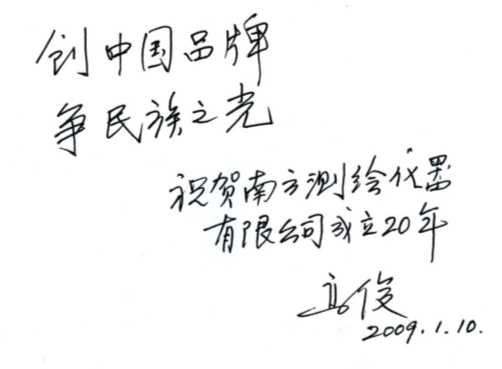 创中国品牌
争民族之光
祝贺南方测绘仪器
有限公司成立20年
高俊
2009.1.10.